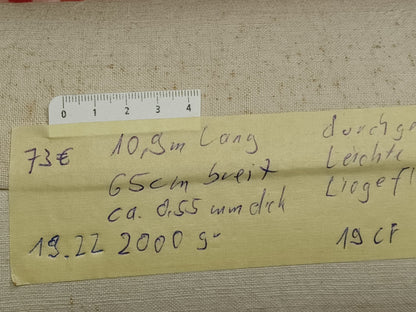 0 1 2 3 4
73€ 10,9m Lang
65cm breit
ca. 0,55 mm dick
19.22 2000 gr
durchge
Leichte
Liegefl
19 CF